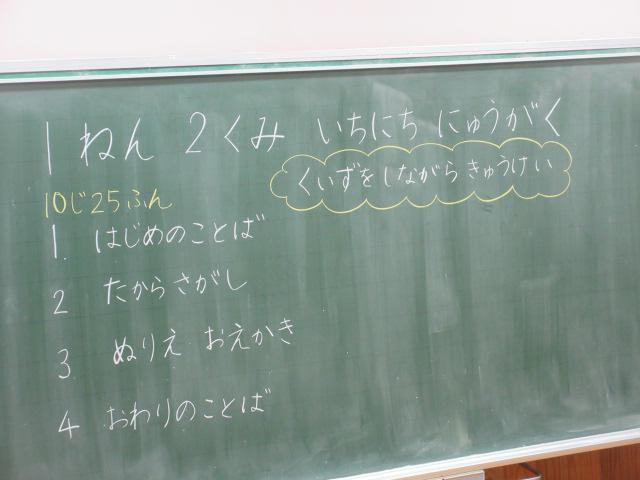 1ねん 2くみ いちにち にゅうがく
くいずをしながら きゅうけい
10じ25ふん
1. はじめのことば
2 たからさがし
3 ぬりえ おえかき
4 おわりのことば